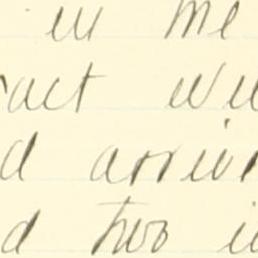 in me
ract wi
d arriv
d two i